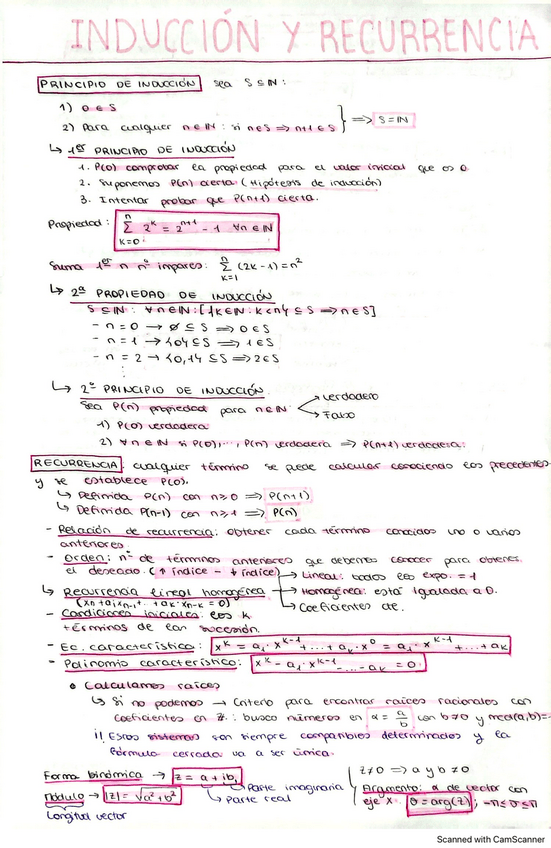 INDUCCIÓN Y RECURRENCIA
PRINCIPIO DE INDUCCIÓN sea S ⊆ ℕ:
1) 0 ∈ S
2) Para cualquier n ∈ ℕ: si n ∈ S ⟹ n+1 ∈ S } ⟹ S = ℕ
↳ 1er PRINCIPIO DE INDUCCIÓN
1. P(0) comprobar la propiedad para el valor inicial que es 0
2. Suponemos P(n) cierta (Hipótesis de inducción)
3. Intentar probar que P(n+1) cierta.
Propiedad: ∑_{k=0}^{n} 2^k = 2^{n+1} - 1 ∀n ∈ ℕ
Suma 1er n nº impares: ∑_{k=1}^{n} (2k-1) = n²
↳ 2ª PROPIEDAD DE INDUCCIÓN
S ⊆ ℕ: ∀n ∈ ℕ: [{k ∈ ℕ: k < n} ⊆ S ⟹ n ∈ S]
- n = 0 → ∅ ⊆ S ⟹ 0 ∈ S
- n = 1 → {0} ⊆ S ⟹ 1 ∈ S
- n = 2 → {0,1} ⊆ S ⟹ 2 ∈ S
⋮
↳ 2º PRINCIPIO DE INDUCCIÓN
Sea P(n) propiedad para n ∈ ℕ → verdadero
→ Falso
1) P(0) verdadera
2) ∀n ∈ ℕ si P(0),..., P(n) verdadera ⟹ P(n+1) verdadera.
RECURRENCIA: cualquier término se puede calcular conociendo los precedentes
y se establece P(0).
↳ Definida P(n) con n ≥ 0 ⟹ P(n+1)
↳ Definida P(n-1) con n ≥ 1 ⟹ P(n)
- Relación de recurrencia: obtener cada término conocidos uno o varios
anteriores.
- Orden: nº de términos anteriores que debemos conocer para obtener
el deseado. (↑ índice - ↓ índice)
→ Lineal: todos los expo. = 1
↳ Recurrencia lineal homogénea → Homogénea: está igualada a 0.
(xn + a1xn-1 + .. + ak·xn-k = 0) → Coeficientes cte.
- Condiciones iniciales: los k
términos de la sucesión.
- Ec. característica: x^k = a1·x^{k-1} + ... + ak·x^0 = a1·x^{k-1} + ... + ak
- Polinomio característico: x^k - a1·x^{k-1} - ... - ak = 0
• Calculamos raíces
↳ Si no podemos → Criterio para encontrar raíces racionales con
coeficientes en ℤ: busco números en α = a/b con b ≠ 0 y mcd(a,b)=
¡! Estos sistemas son siempre compatibles determinados y la
fórmula cerrada va a ser única.
Forma binómica → z = a + ib
→ Parte imaginaria
→ Parte real
Módulo → |z| = √a² + b²
Longitud vector
z ≠ 0 ⟹ a y b ≠ 0
Argumento: α de vector con
eje x θ = arg(z); -π ≤ θ ≤ π
Scanned with CamScanner